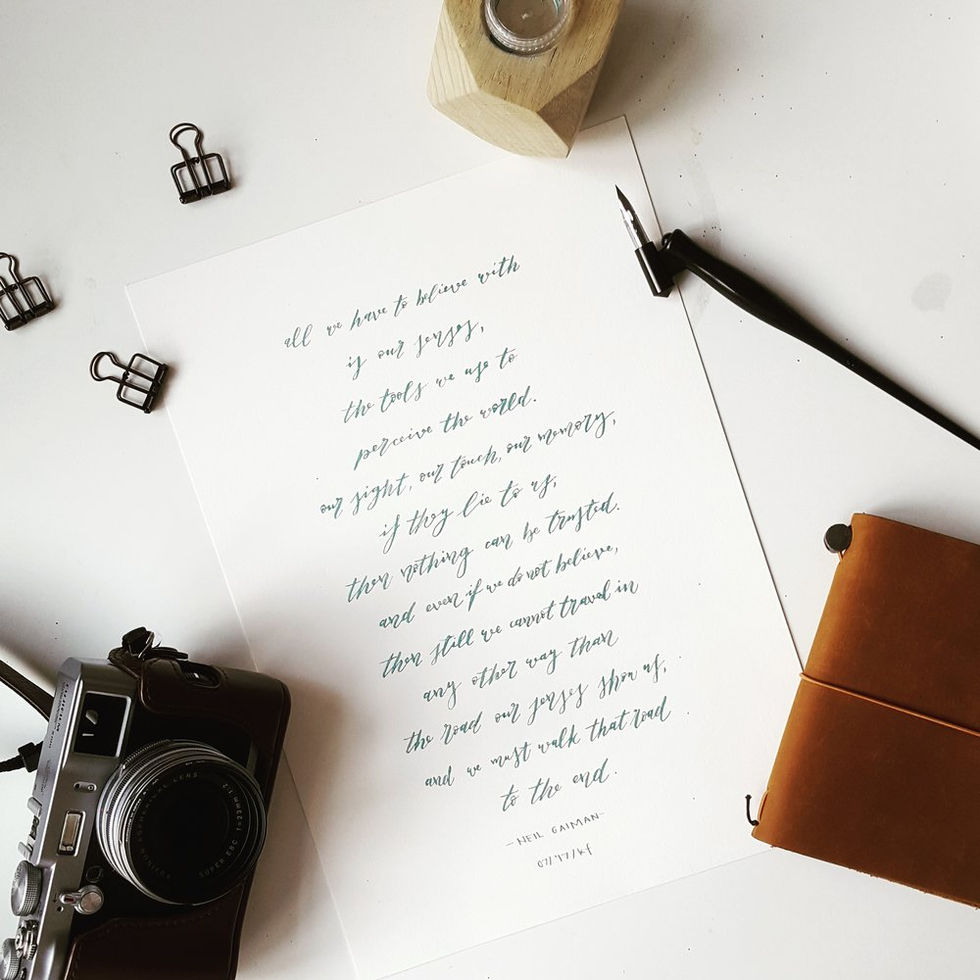 all we have to believe with
is our senses,
the tools we use to
perceive the world.
our sight, our touch, our memory,
if they lie to us,
then nothing can be trusted.
and even if we do not believe,
then still we cannot travel in
any other way than
the road our senses show us,
and we must walk that road
to the end.
-NEIL GAIMAN-
FUJIFILM
LENS
SUPER EBC f=23mm 1:2